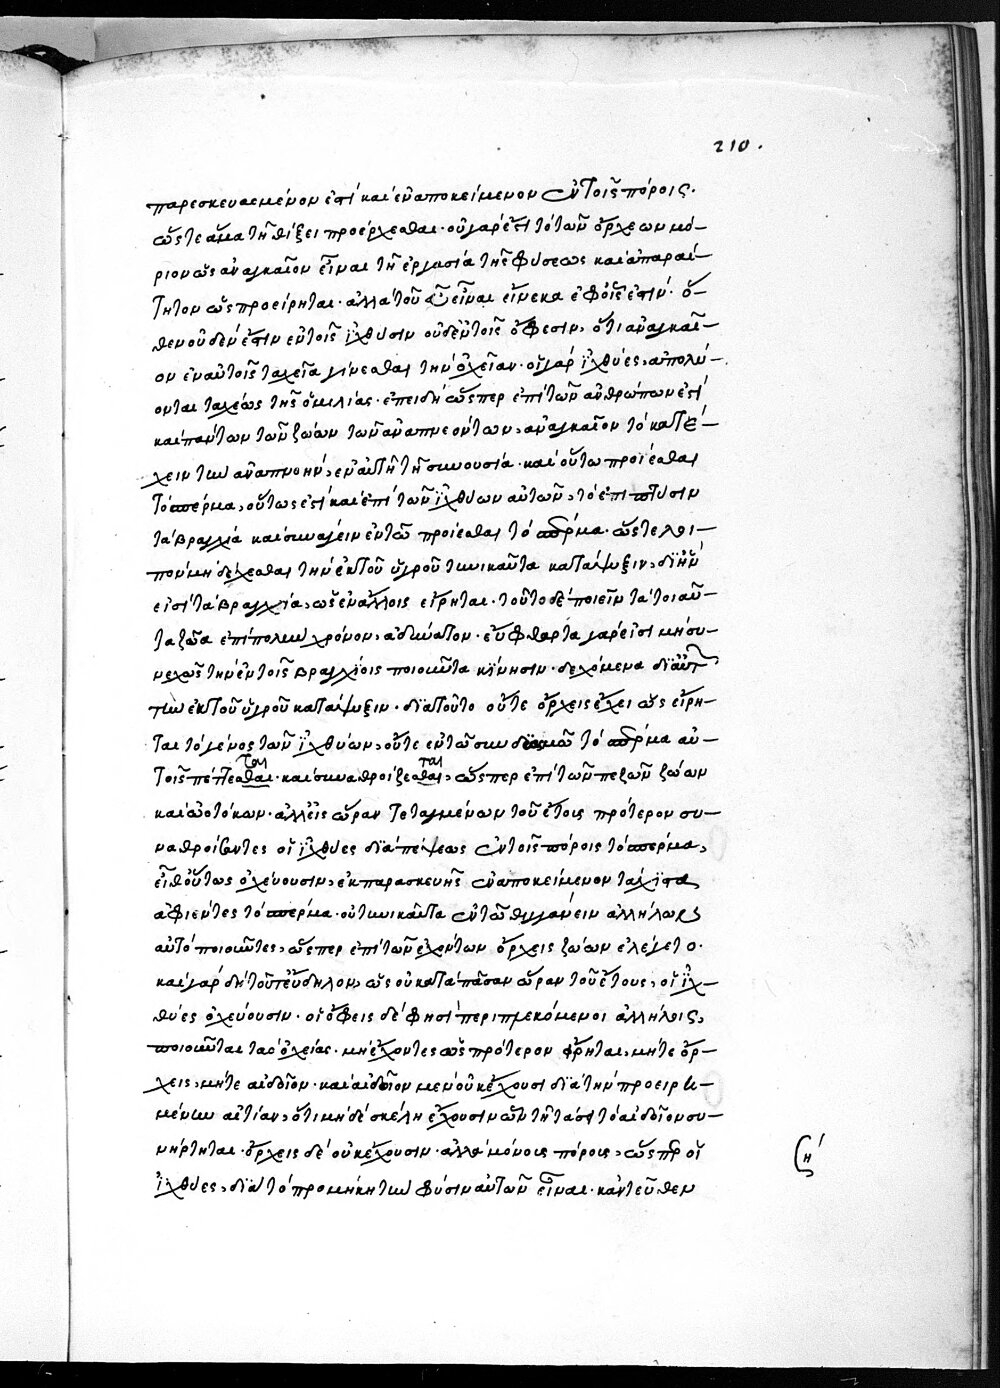 210.
παρεσκευασμένον ἐστὶ καὶ ἐναποκείμενον ἐν τοῖς πόροις.
ὥστε ἅμα τῇ θίξει προέρχεσθαι· οὐ γάρ ἐστι τὸ τῶν ὄρχεων μό-
ριον ὡς ἀναγκαῖον εἶναι τῇ ἐργασίᾳ τῆς φύσεως καὶ ἀπαραί-
τητον ὡς προείρηται· ἀλλὰ τοῦ εὖ εἶναι εἵνεκα ἐφ' οἷς ἐστίν· ὅ-
θεν οὐδέν ἐστιν ἐν τοῖς ἰχθύσιν οὐδ' ἐν τοῖς ὄφεσιν, ὅτι ἀναγκαῖ-
ον ἐν αὐτοῖς ταχεῖα γίνεσθαι τὴν ὀχείαν· οἱ γὰρ ἰχθύες, ἀπολύ-
ονται ταχέως τῆς ὁμιλίας· ἐπειδὴ ὥσπερ ἐπὶ τῶν ἀνθρώπων ἐστὶ
καὶ πάντων τῶν ζώων τῶν ἀναπνεόντων, ἀναγκαῖον τὸ κατέ-
χειν τὴν ἀναπνοήν, ἐν αὐτῇ τῇ συνουσίᾳ· καὶ οὕτω προΐεσθαι
τὸ σπέρμα, οὕτως ἐστὶ καὶ ἐπὶ τῶν ἰχθύων αὐτῶν, τὸ ἐπιπτύσιν
τὰ βραγχιά καὶ συνάγειν ἐν τῷ προΐεσθαι τὸ σπέρμα· ὥστε λοι-
πὸν μὴ δέχεσθαι τὴν ἐκ τοῦ ὑγροῦ τηνικαῦτα κατάψυξιν, δι' ἣν
εἰσὶ τὰ βραγχία, ὡς ἐν ἄλλοις εἴρηται· τοῦτο δὲ ποιεῖν τὰ τοιαῦ-
τα ζῶα ἐπὶ πολὺν χρόνον, ἀδύνατον· εὔφθαρτα γάρ εἰσι μὴ συ-
νεχῶς τὴν ἐν τοῖς βραγχίοις ποιοῦντα κίνησιν· δεχόμενα δι' αὐτ
τὴν ἐκ τοῦ ὑγροῦ κατάψυξιν· διὰ τοῦτο οὔτε ὄρχεις ἔχει ὡς εἴρη-
ται τὸ γένος τῶν ἰχθύων, οὔτε ἐν τῷ συνδυασμῷ τὸ σπέρμα αὐ-
τοῖς πέττεσθαι· καὶ συναθροίζεσθαι, ὥσπερ ἐπὶ τῶν πεζῶν ζώων
ται ται
καὶ ζωοτόκων· ἀλλ' εἰς ὥραν τεταγμένων τοῦ ἔτους πρότερον συ-
ναθροίσαντες οἱ ἰχθύες διὰ πέψεως ἐν τοῖς πόροις τὸ σπέρμα,
εἶθ' οὕτως ὀχεύουσιν, ἐκ παρασκευῆς ἐναποκείμενον τάχιστα
ἀφιέντες τὸ σπέρμα· οὐ τηνικαῦτα ἐν τῷ θιγγάνειν ἀλλήλους
αὐτὸ ποιοῦντες, ὥσπερ ἐπὶ τῶν ἐχόντων ὄρχεις ζώων ἐλέγετο.
καὶ γὰρ δὴ τοῦτ' εὔδηλον, ὡς οὐ κατὰ πᾶσαν ὥραν τοῦ ἔτους, οἱ ἰχ-
θύες ὀχεύουσιν· οἱ ὄφεις δέ φησι περιπλεκόμενοι ἀλλήλοις,
ποιοῦνται τὰς ὀχείας· μὴ ἔχοντες ὡς πρότερον εἴρηται, μήτε ὄρ-
χεις, μήτε αἰδοῖον· καὶ αἰδοῖον μὲν οὐκ ἔχουσι διὰ τὴν προειρη-
μένην αἰτίαν, ὅτι μηδὲ σκέλη ἔχουσιν ὧν τῇ τάσει τὸ αἰδοῖον συ-
νήρτηται· ὄρχεις δὲ οὐκ ἔχουσιν· ἀλλὰ μόνους πόρους, ὥσπερ οἱ
ἰχθύες, διὰ τὸ προμήκη τὴν φύσιν αὐτῶν εἶναι· κἀντεῦθεν